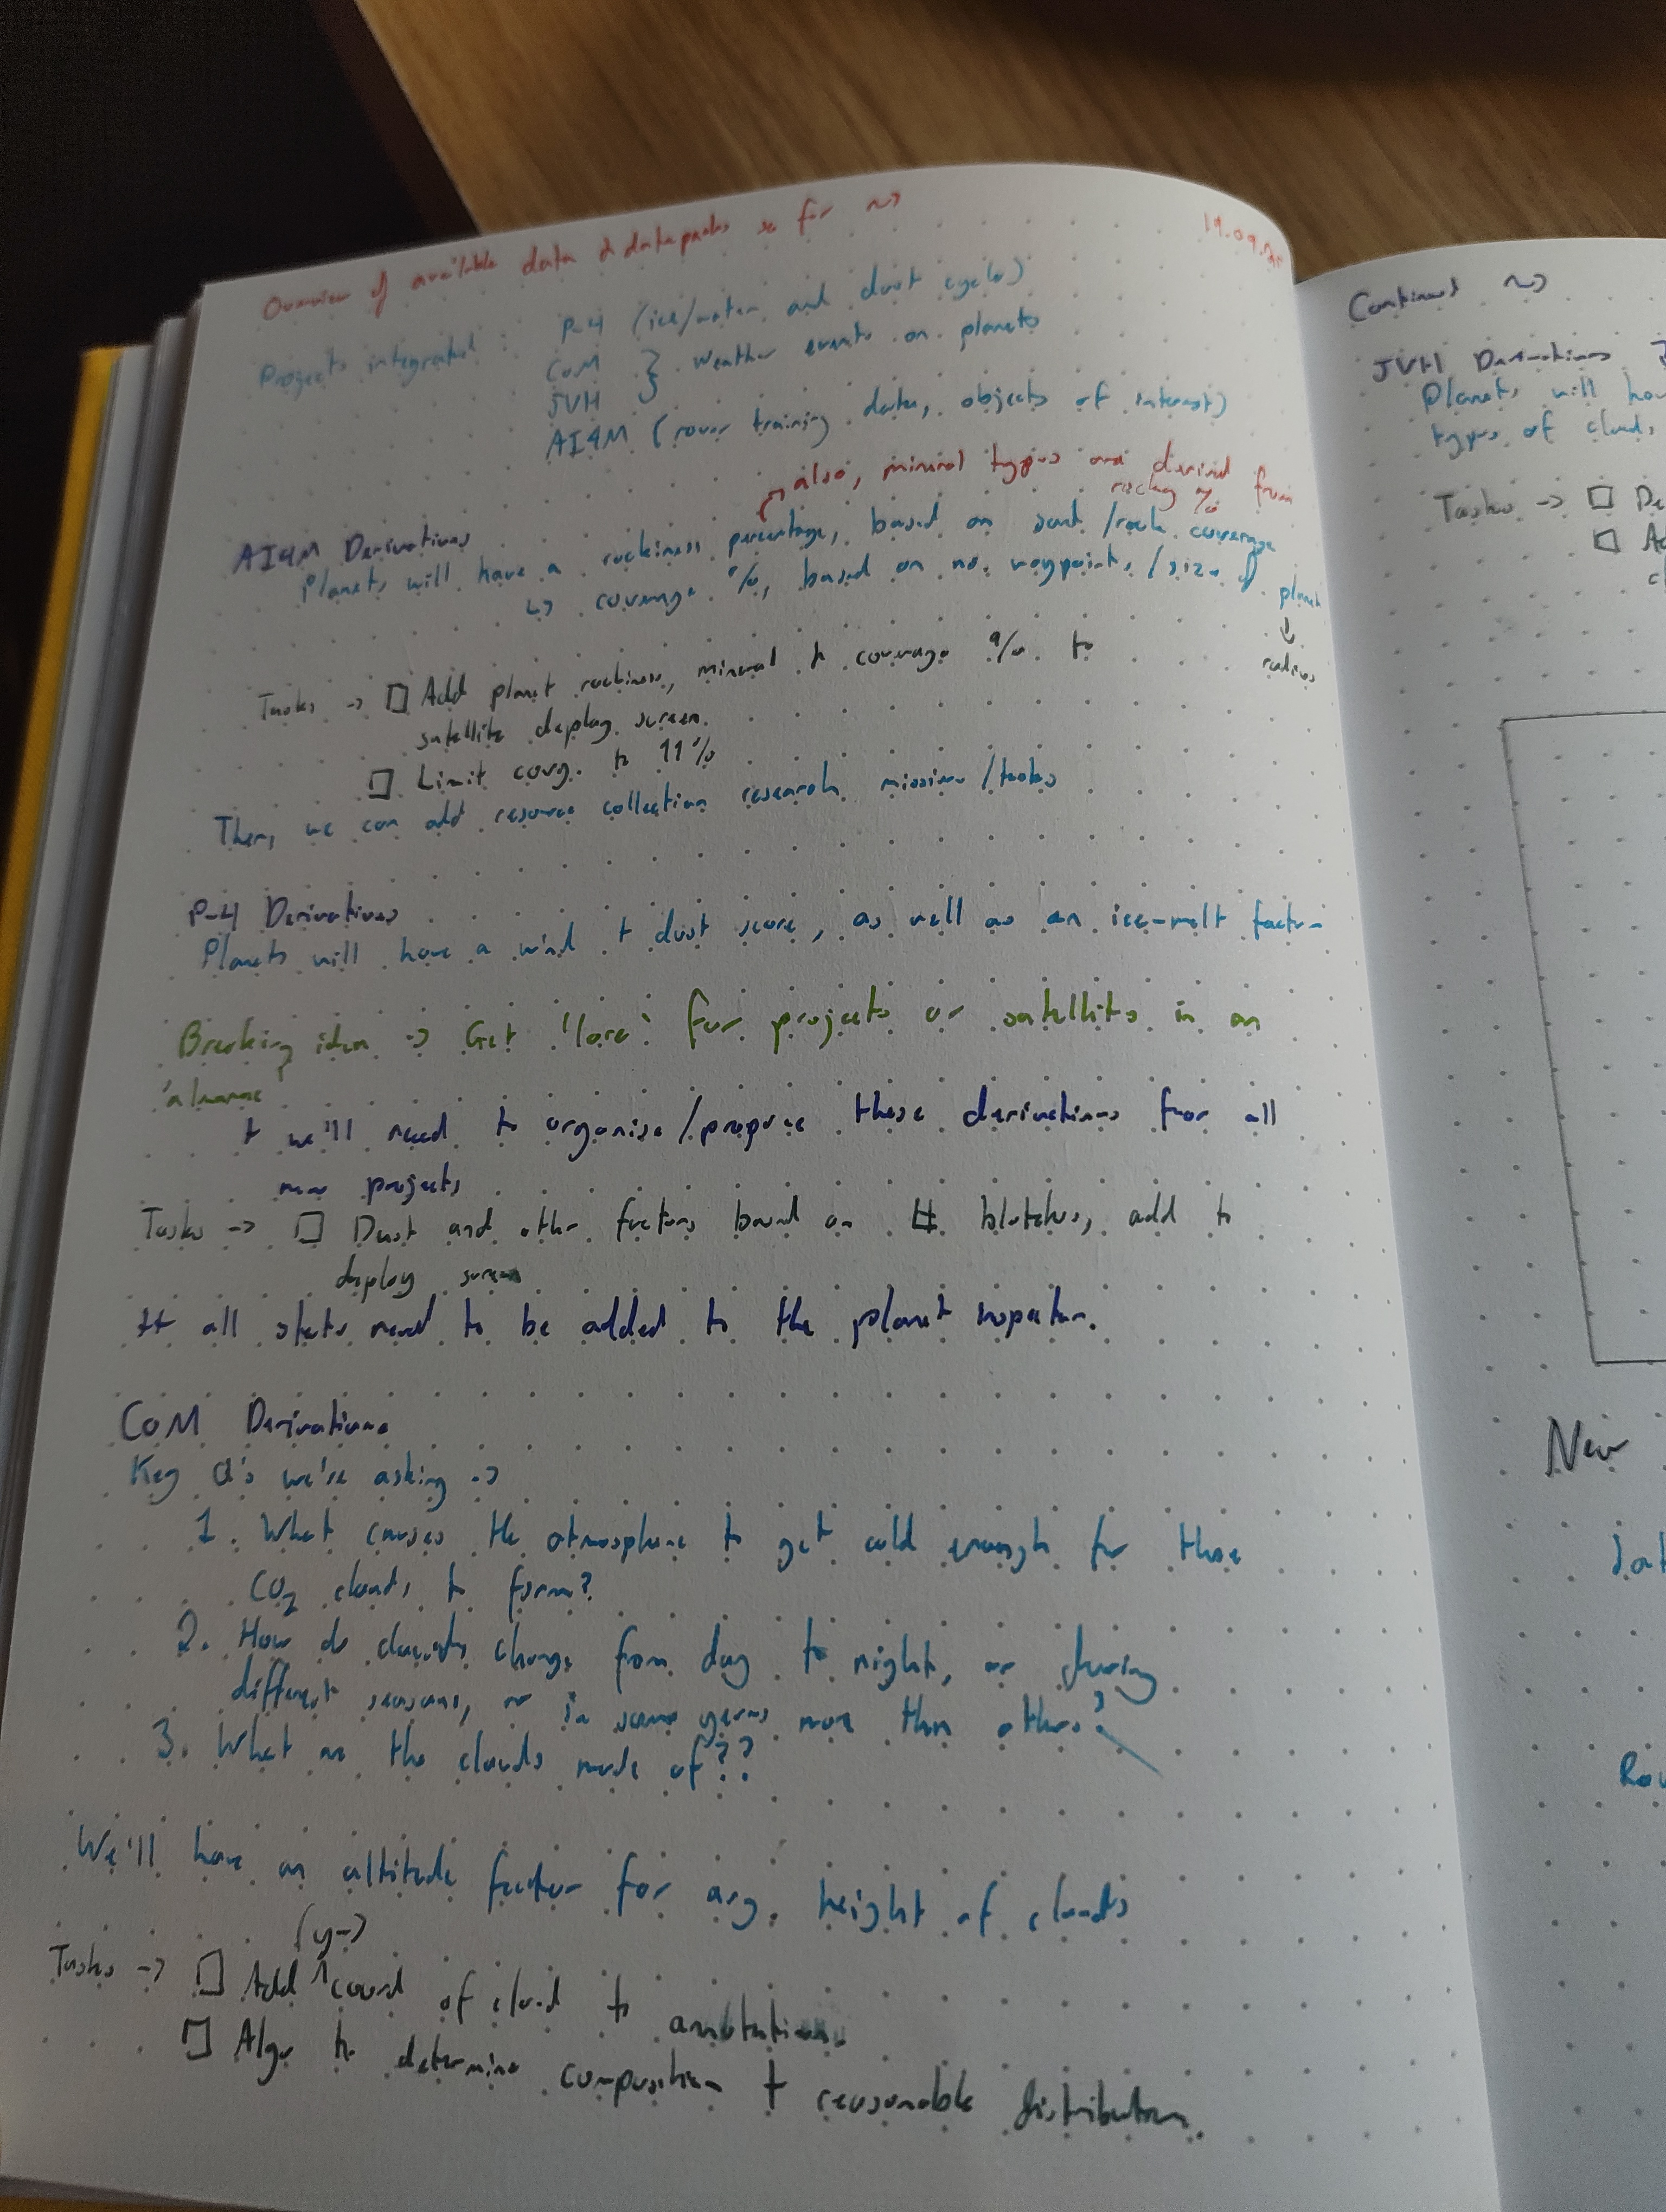 Overview of available data & datapacks so far ~>
19.09.25
Projects integrated : P-4 (ice/water and dust cycle)
CoM } Weather events on planets
JVH
AI4M (rover training data, objects of interest)
also, mineral types are derived from
rocky %
AI4M Derivatives
Planets will have a rockiness percentage, based on sand/rock coverage
↳ coverage %, based on no. waypoints/size of planet
↓
radius
Tasks -> □ Add planet rockiness, mineral + coverage % to
satellite deploy screen.
□ Limit covg. to 11%
Then, we can add resource collection research missions/tasks
P-4 Derivatives
Planets will have a wind + dust score, as well as an ice-melt factor
Breaking idea -> Get 'lore' for projects or satellites in an
'almanac'
+ we'll need to organise/propose these derivations for all
new projects
Tasks -> □ Dust and other factors based on # blotches, add to
deploy screen
++ all stats need to be added to the planet inspector.
CoM Derivations
Key Q's we're asking ->
1. What causes the atmosphere to get cold enough for these
CO2 clouds to form?
2. How do clouds change from day to night, or during
different seasons, or in some years more than others?
3. What are the clouds made of??
We'll have an altitude factor for avg. height of clouds
(y->)
Tasks -> □ Add ^ coord of cloud to annotations.
□ Algo to determine composition + reasonable distribution.
Continued ~>
JVH Derivations
Planets will
types of clouds
Tasks -> □
□
New